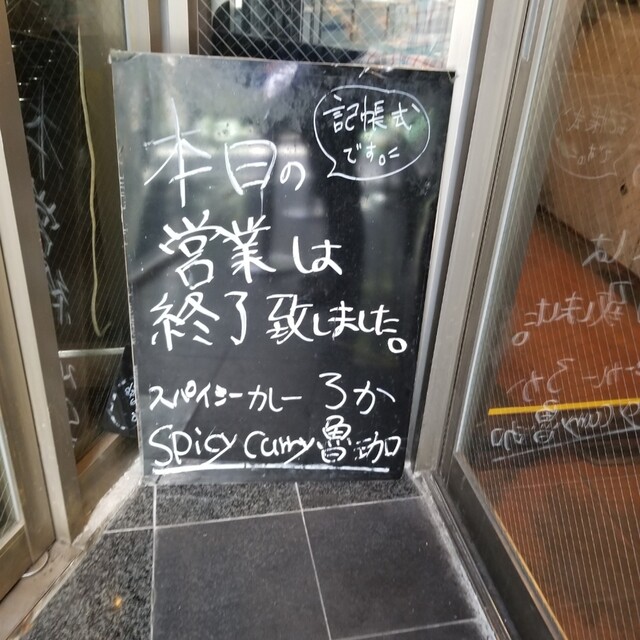 記帳式
です。
本日の
営業は
終了致しました。
スパイシーカレー ろか
Spicy Curry 魯珈